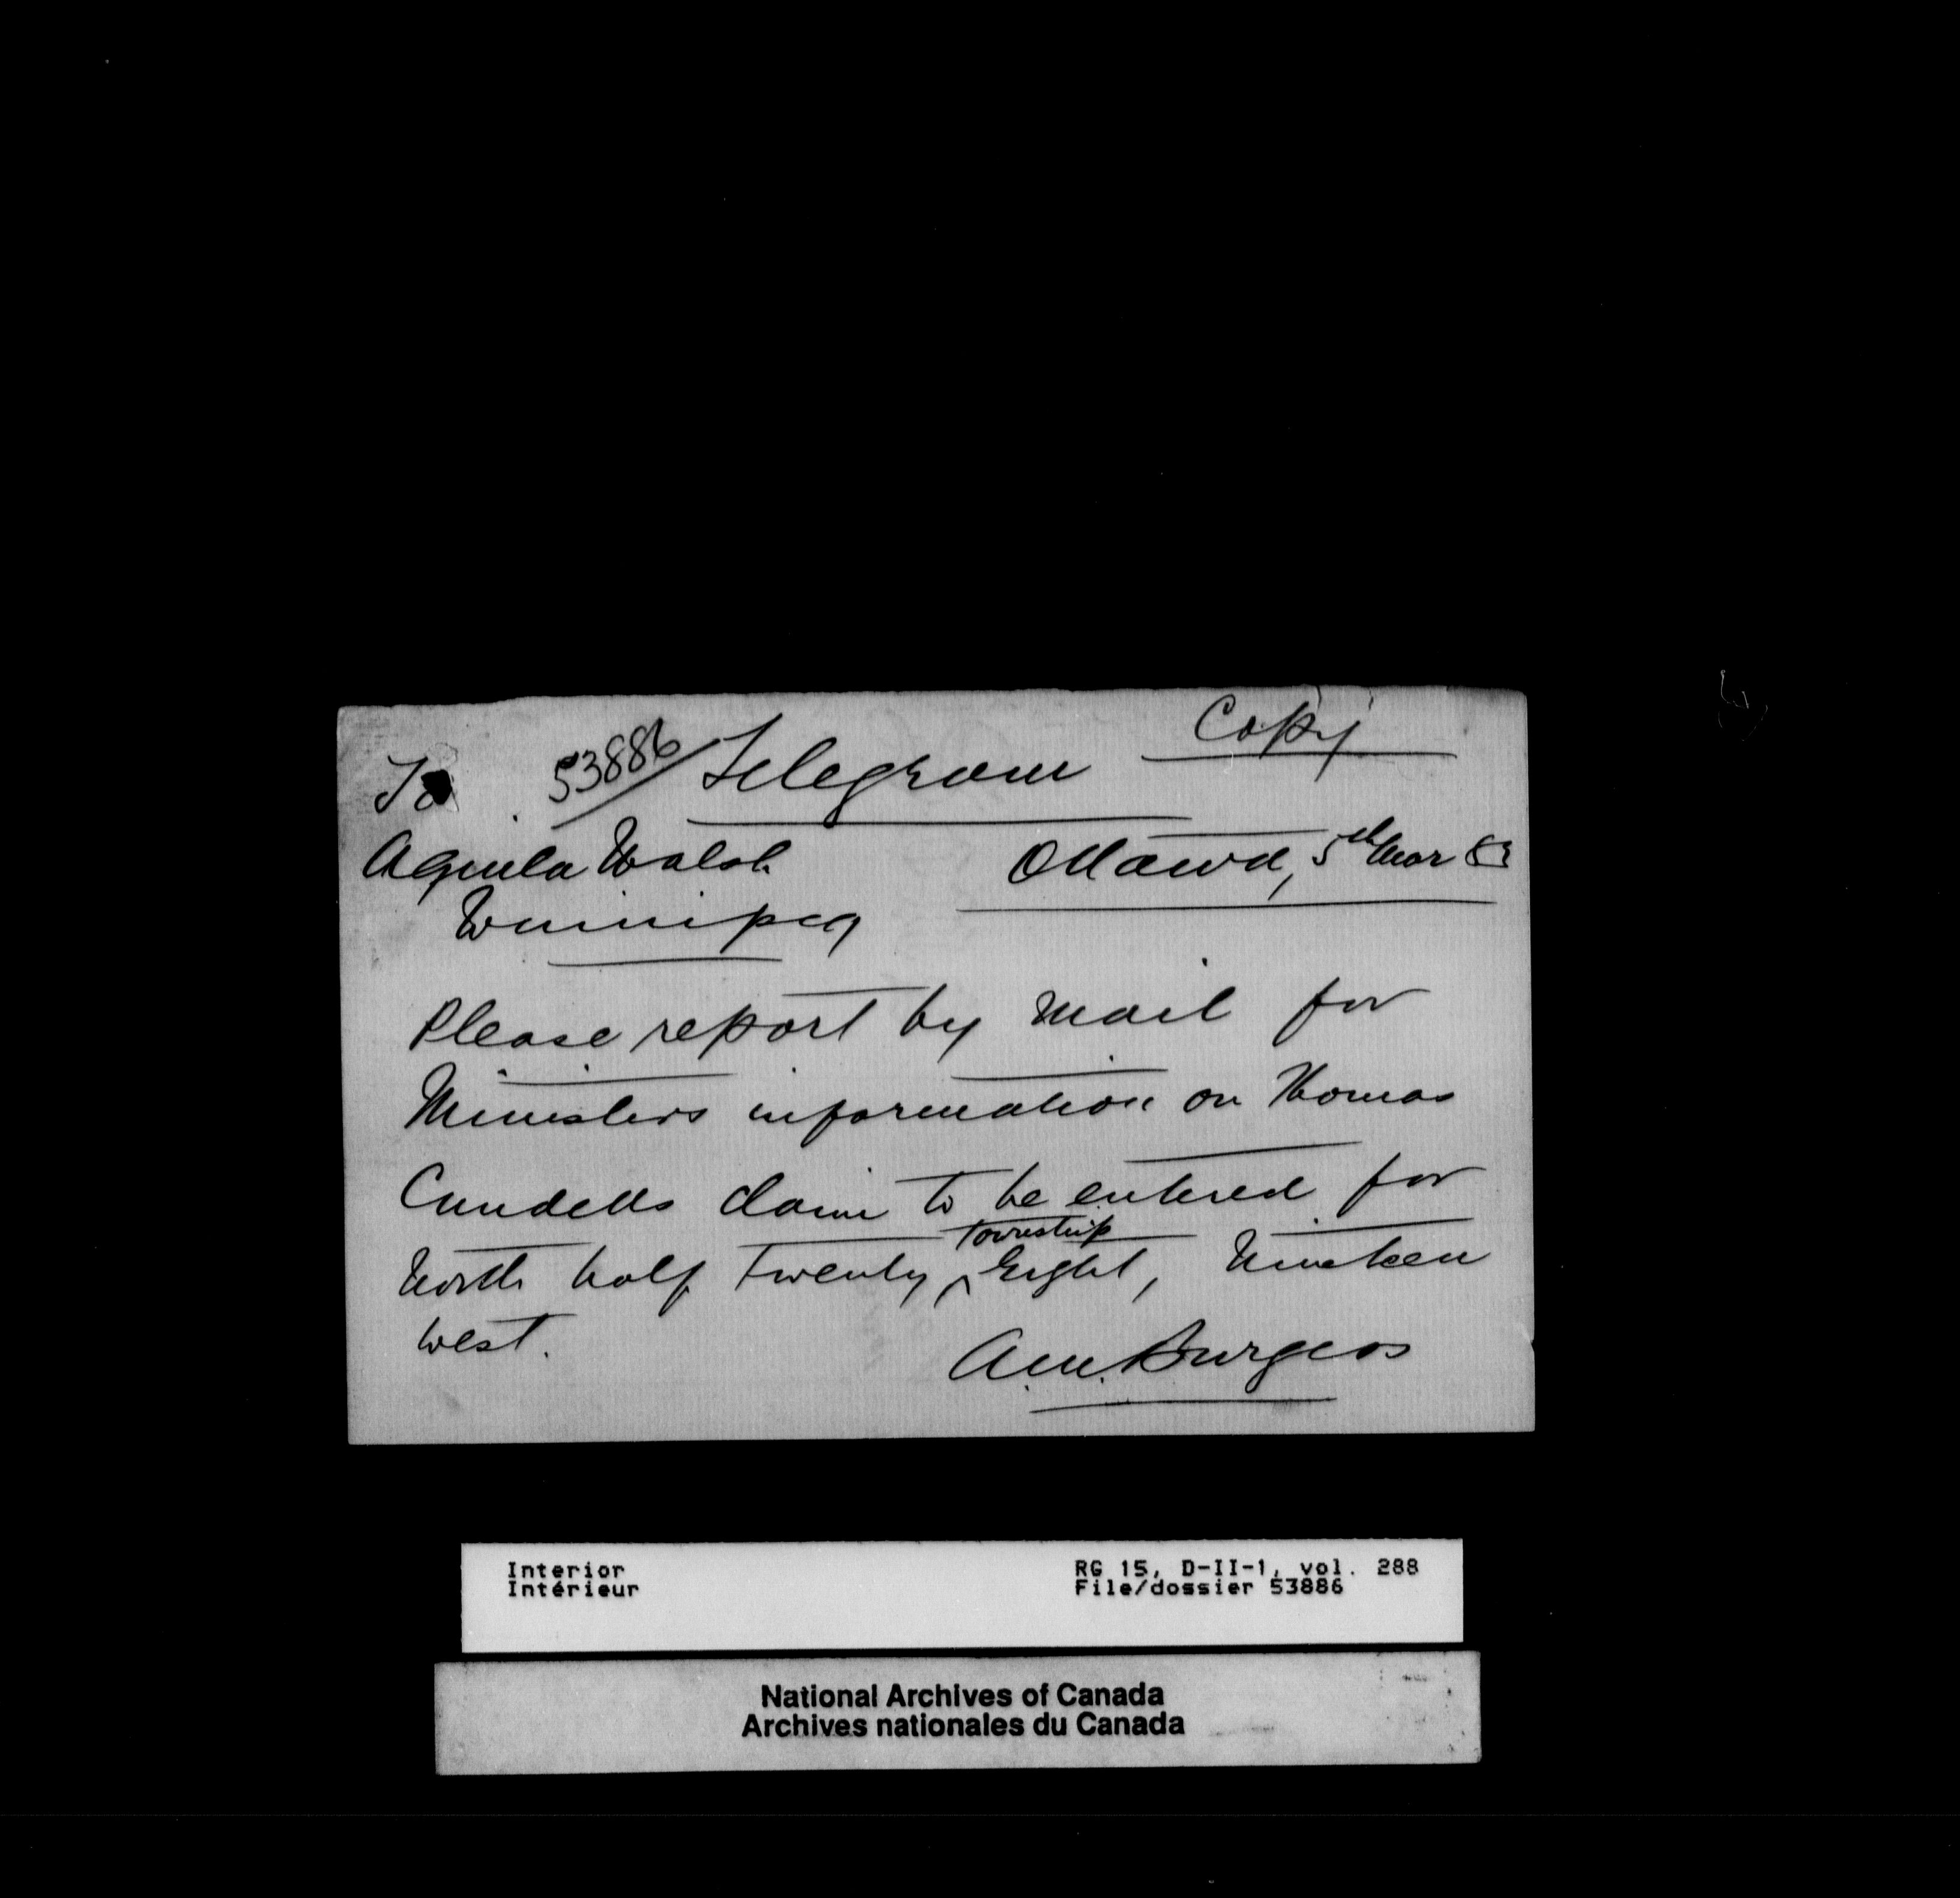 Copy
53886 Telegram
To
Aquila Walsh
Ottawa, 5th Mar 83
Winnipeg
Please report by mail for
Ministers information on Thomas
Cundells claim to be entered for
North half twenty ^ township Eight, Nineteen
West.
A.M. Burgess
Interior
Intérieur
RG 15, D-II-1, vol. 288
File/dossier 53886
National Archives of Canada
Archives nationales du Canada